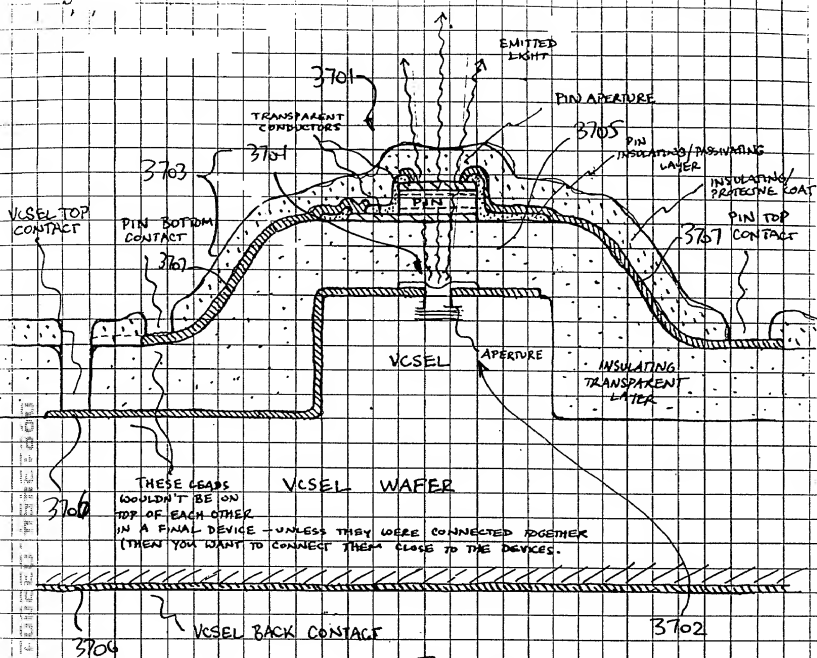 EMITTED
LIGHT
3701
PIN APERTURE
TRANSPARENT
CONDUCTORS
3705
3701
3703
PIN
INSULATING/PASSIVATING
LAYER
INSULATING/
PROTECTIVE COAT
VCSEL TOP
CONTACT
PIN BOTTOM
CONTACT
PIN
PIN TOP
CONTACT
3707
3707
VCSEL
APERTURE
INSULATING
TRANSPARENT
LAYER
THESE LEADS
WOULDN'T BE ON
TOP OF EACH OTHER
IN A FINAL DEVICE - UNLESS THEY WERE CONNECTED TOGETHER
(THEN YOU WANT TO CONNECT THEM CLOSE TO THE DEVICES.
VCSEL WAFER
3706
VCSEL BACK CONTACT
3706
3702